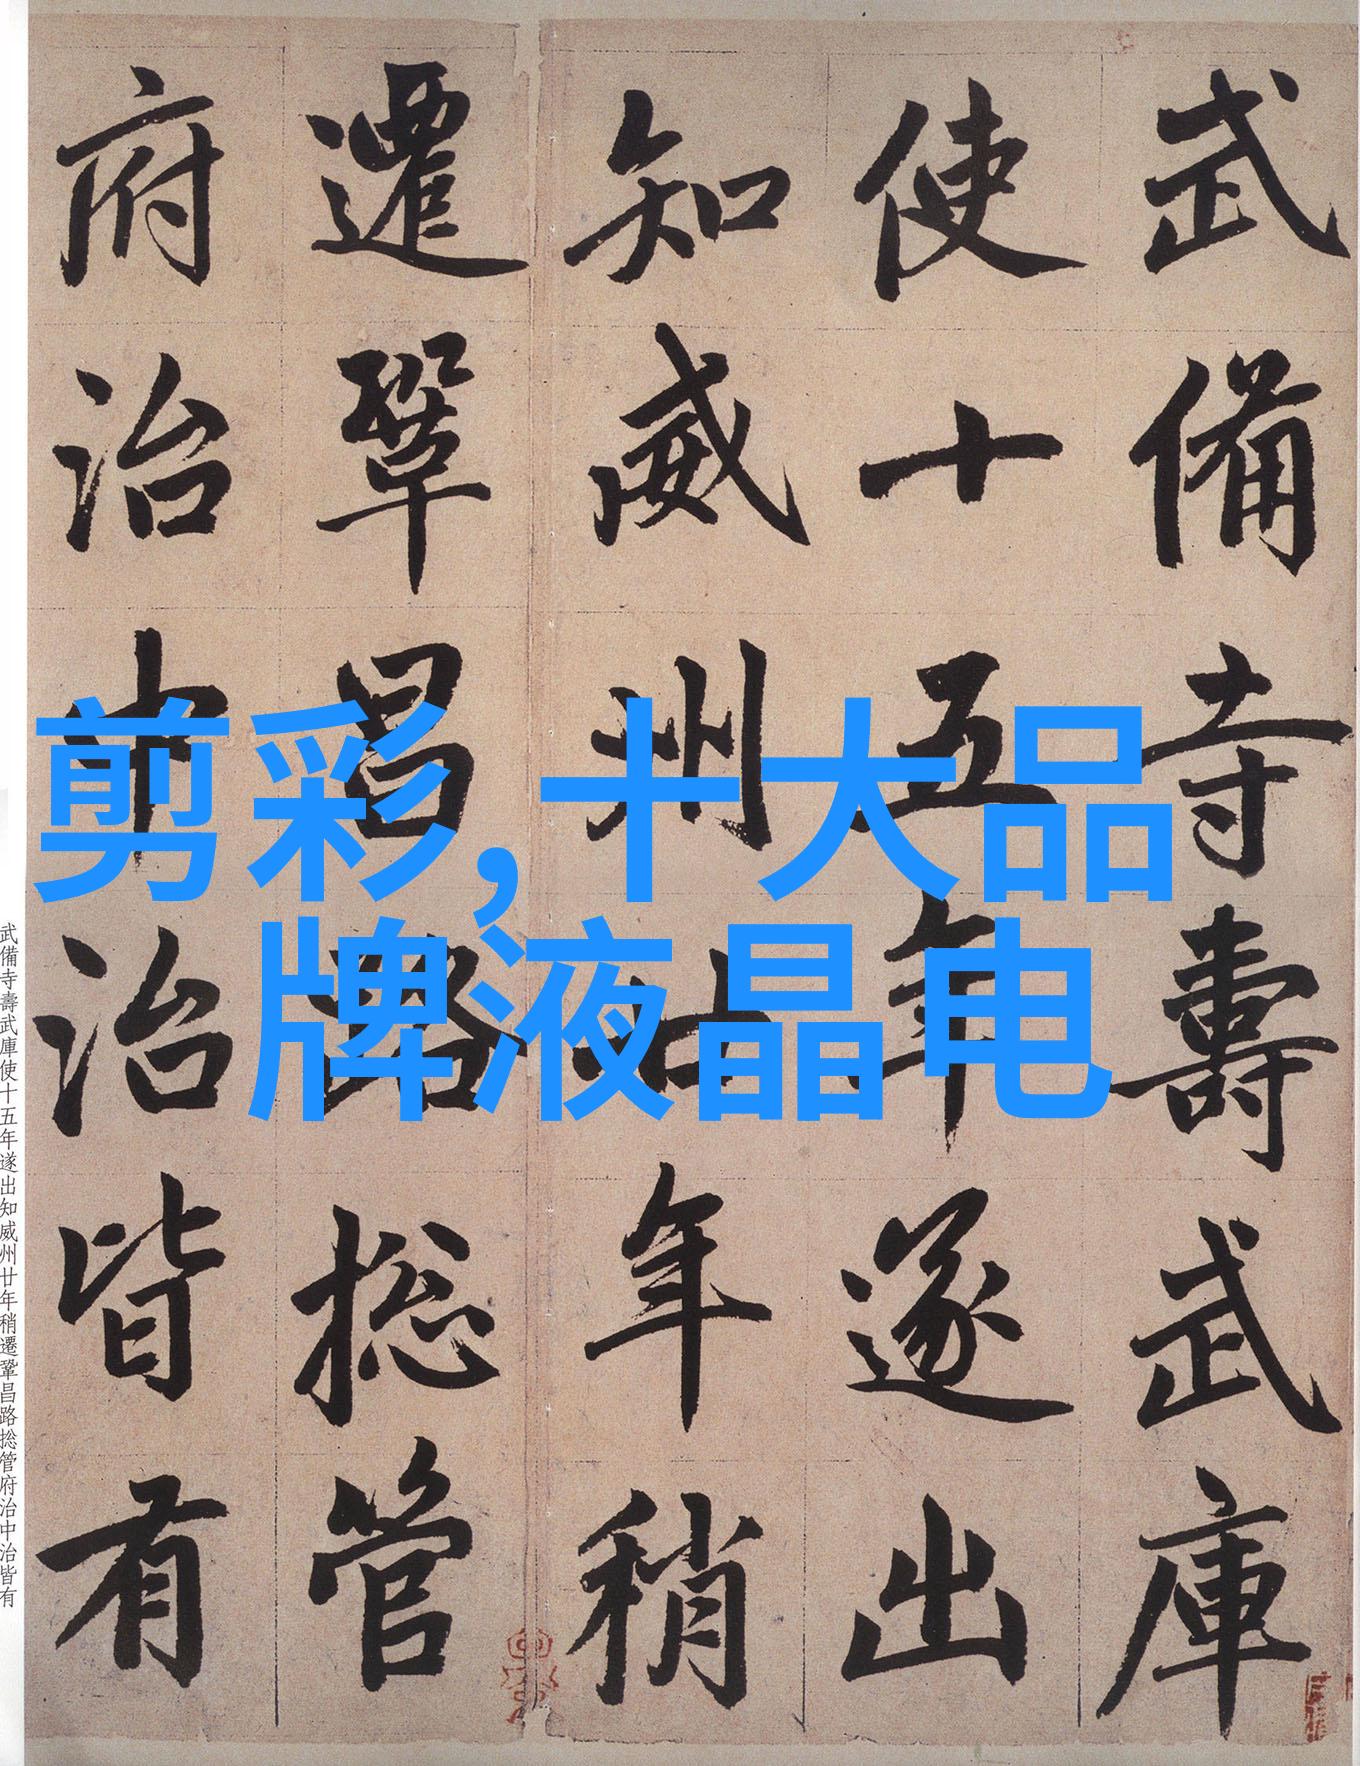 武備寺壽武庫
使十五年遂出
知威州廿年稍
遷鞏昌路捴管
府治中治皆有
剪彩,十大品
牌液晶电
武備寺壽武庫使十五年遂出知威州廿年稍遷鞏昌路捴管府治中治皆有